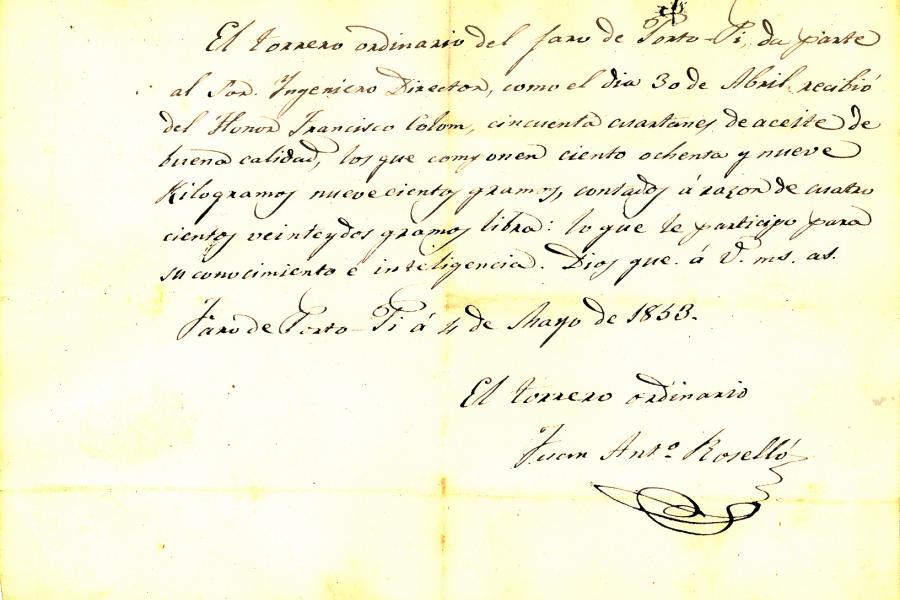 El torrero ordinario del faro de Porto-Pi, da parte
al Sor. Ingeniero Director, como el dia 30 de Abril, recibió
del Honor Francisco Colom, cincuenta cuartanes de aceite de
buena calidad, los que componen ciento ochenta y nueve
Kilogramos nuevecientos gramos, contados á razon de cuatro
cientos veinteydos gramos libra: lo que le participo para
su conocimiento é inteligencia. Dios gue. á V. ms. as.
Faro de Porto-Pi á 4 de Mayo de 1853.
El torrero ordinario
Juan Anto. Roselló